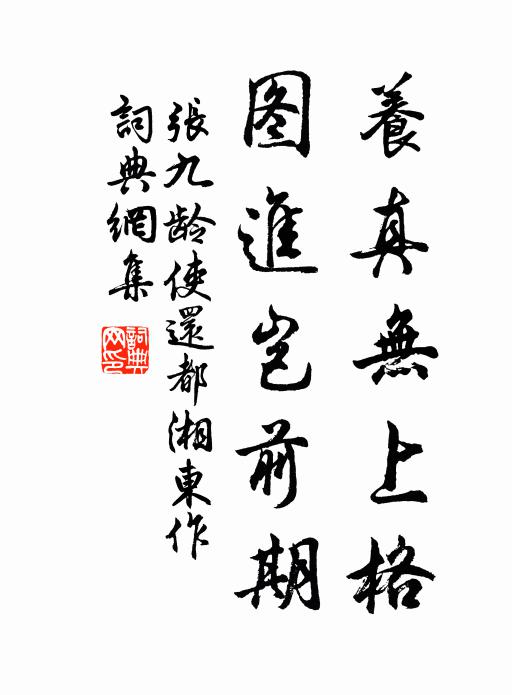 養真無上格
图進岂前期
張九龄使還都湘東作
詞典網集
詞典网印